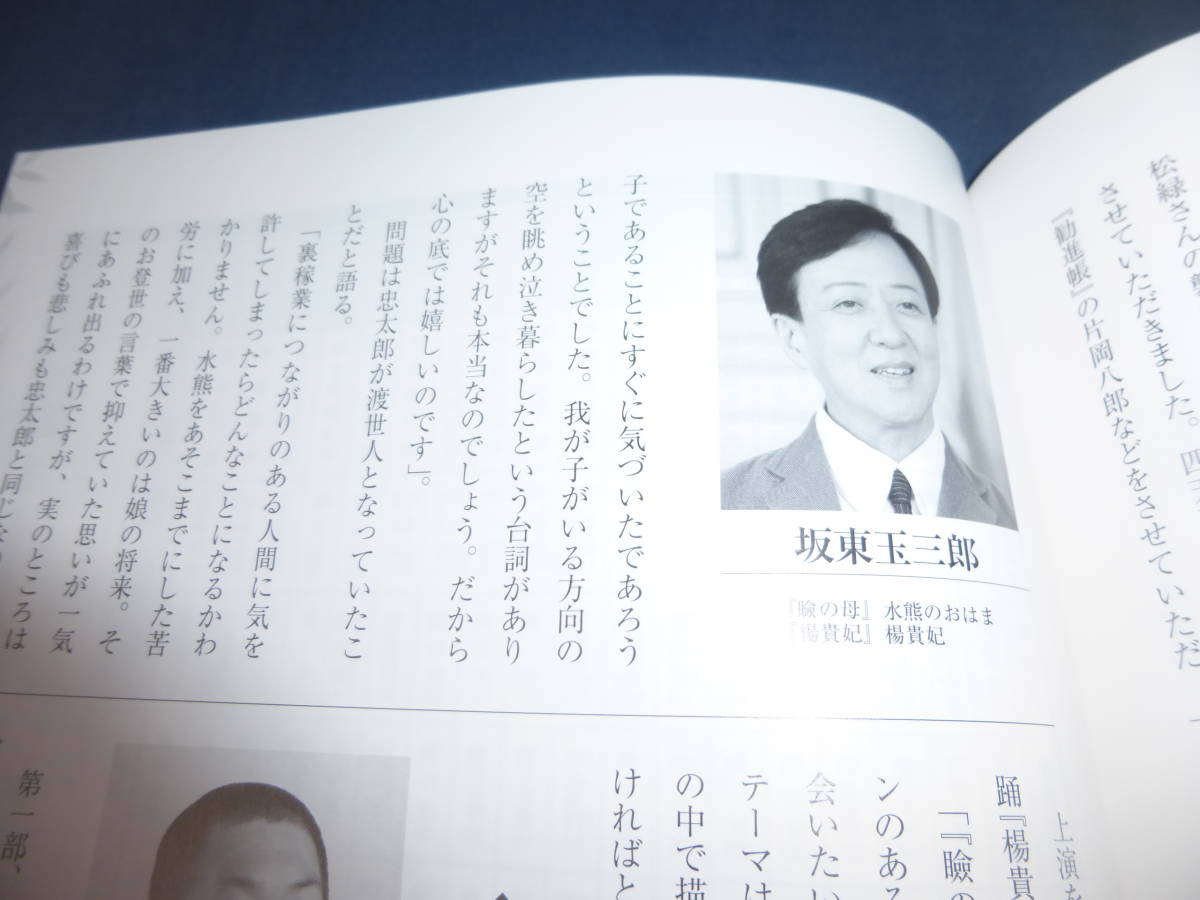 松緑さんの
させていただきました。
『勧進帳』の片岡八郎などをさせていただ
坂東玉三郎
『瞼の母』水熊のおはま
『楊貴妃』楊貴妃
子であることにすぐに気づいたであろう
ということでした。我が子がいる方向の
空を眺め泣き暮らしたという台詞があり
ますがそれも本当なのでしょう。だから
心の底では嬉しいのです」。
問題は忠太郎が渡世人となっていたこ
とだと語る。
「裏稼業につながりのある人間に気を
許してしまったらどんなことになるかわ
かりません。水熊をあそこまでにした苦
労に加え、一番大きいのは娘の将来。そ
のお登世の言葉で抑えていた思いが一気
にあふれ出るわけですが、実のところは
喜びも悲しみも忠太郎と同じな
上演を
踊『楊貴
「『瞼の
ンのある
会いたい
テーマは
の中で描
ければと
第一部、